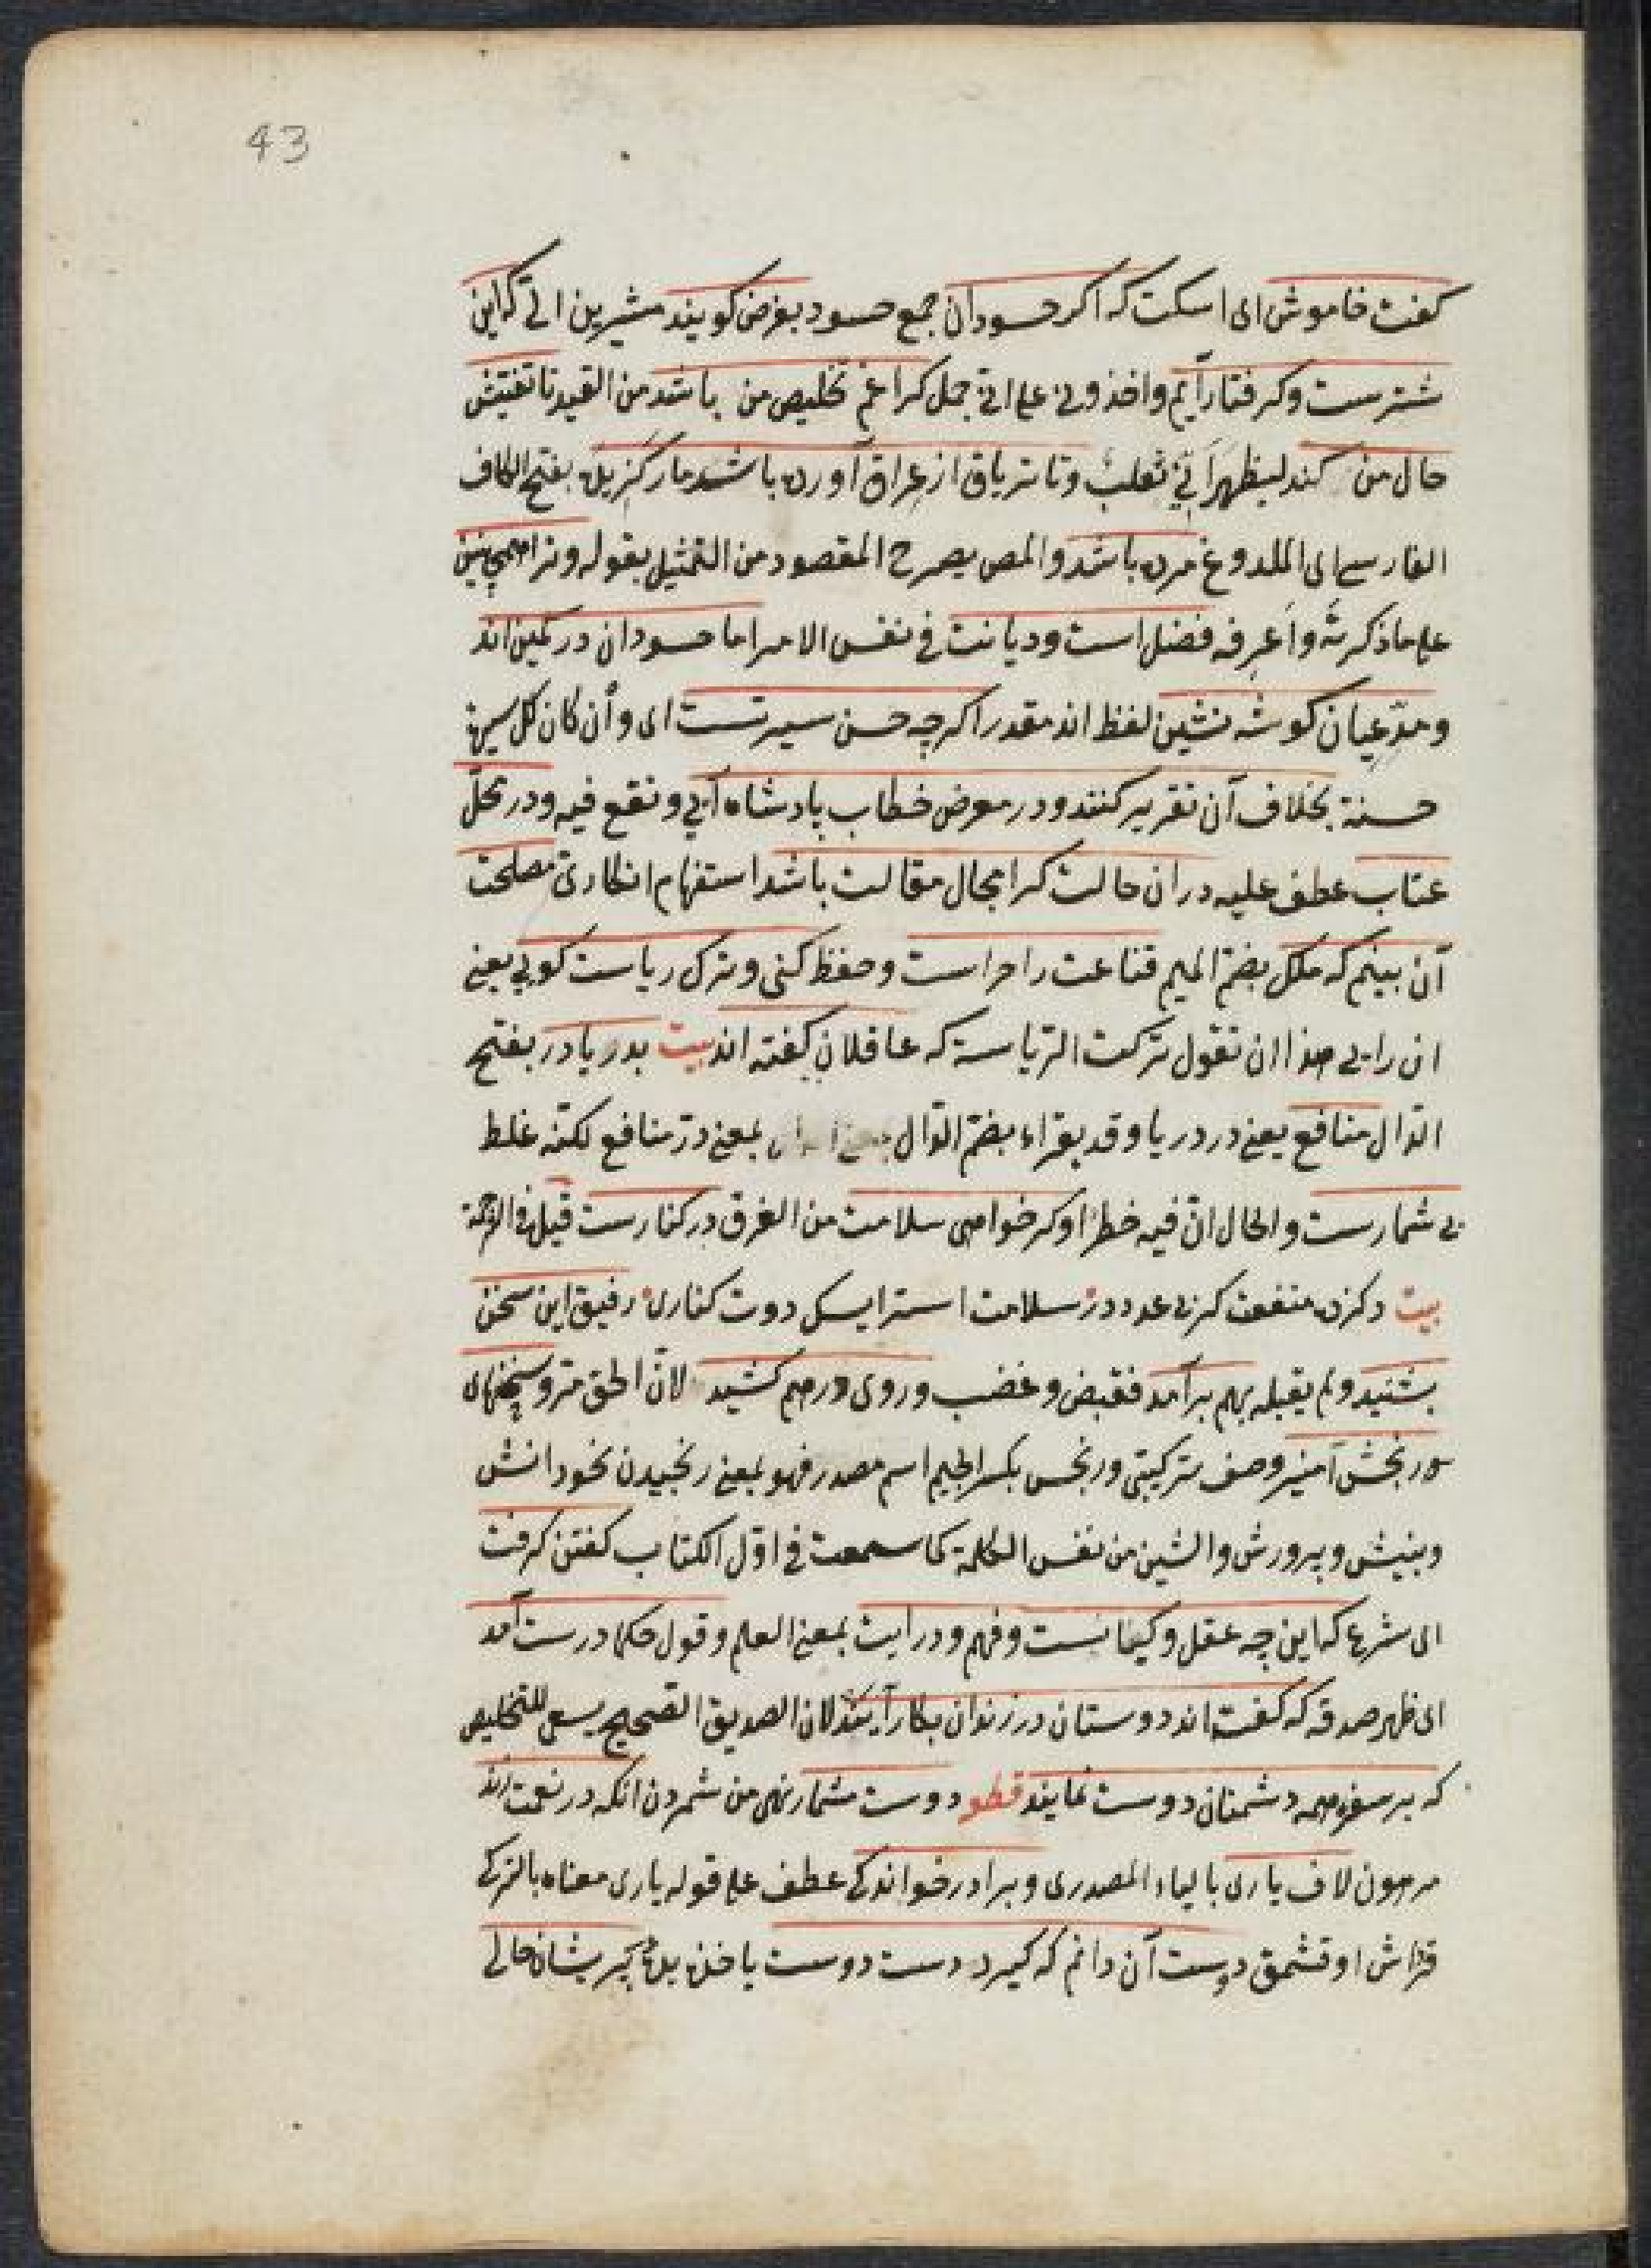 43
كفت خاموش اى اسكت كه اكر حسودان جمع حسود بغرض كويند مشيرين الىّ كه اين
شترست وكرفتار آيم واخذونى على انى جمل كرا غم تخليص من باشد من القيد تا تفتيش
حال من كند ليظهر اَنّى ثعلبٌ وتا ترياق از عراق آورده باشد مار كَزيده بفتح الكاف
الفارسى اى الملدوغ مرده باشد والمص يصرح المقصود من التمثيل بقوله وترا همچنين
على ما ذكرتهُ واَعرِفه فضل است وديانت فى نفس الامر اما حسودان در كمين اند
ومدّعِيان كوشه نشين لفظ اند مقدر اكرچه حسن سيرتست اى وأن كان كل سيرة
حسنة بخلاف آن تقرير كنند ودر معرض خطاب پادشاه آيى وتقع فيه ودر محلّ
عتاب عطف عليه دران حالت كرا مجال مقالت باشد استفهام انكارىّ مصلحت
آن بينم كه ملك بضمّ الميم قناعت را حراست وحفظ كنى وترك رياست كويى يعنى
ان رايى هذا ان تقول تركت الرّياسة كه عاقلان كفته اند بيت بدريا در بفتح
الدّال منافع يعنى در دريا وقد يقراء بضمّ الدّال بمعنى درّ منافع لكنّه غلط
بى شمارست والحال انّ فيه خطرًا وكر خواهى سلامت من الغرق در كنارست قيل فى الترجمة
بيت دكزده منفعت كرنه عدد در سلامت استرايسك دوت كنارى رفيق اين سخن
بشنيد ولم يقبله بهم بر آمد فقبض وغضب وروى درهم كشيد لانّ الحق مرّ وسخنهاى
رنجش آميز وصف تركيبى ورنجس بكسر الجيم اسم مصدر فهو بمعنى رنجيدن نحو دانش
وبنيش وپرورش والشين من نفس الكلمة كما سمعت فى اوّل الكتاب كفتن كرفت
اى شرع كه اين چه عقل وكيفايست وفهم ودرايت بمعنى العلم وقول حكما درست آمد
اى ظهر صدقه كه كفته اند دوستان در زندان بكار آيند لان الصديق الصحيح يسعى للتخليص
كه بر سفره همه دشمنان دوست نمايند قطعه دوست مشمار نهى من شمردن انكه در نعمت زند
مرهون لاف يارى بالياء المصدرى وبرادر خواندكى عطف على قوله يارى معناه بالتركى
قرداش اوقشمق دوست آن دانم كه كيرد دست دوست پريشان حالى